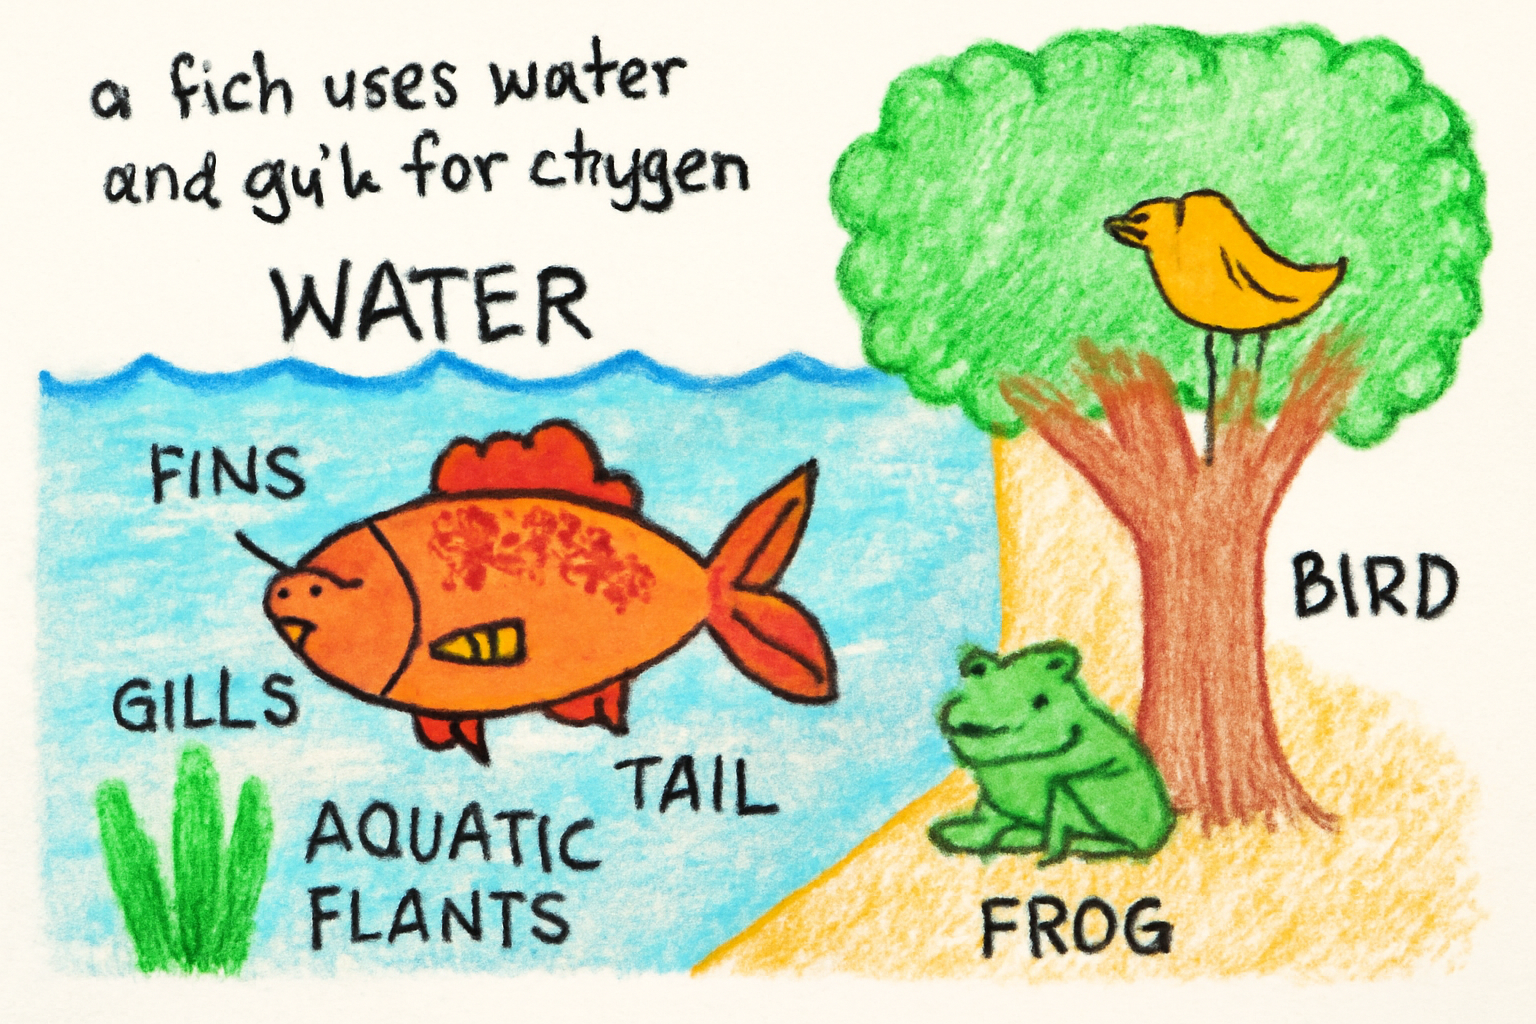 a fich uses water
and gui'h for chygen
WATER
FINS
GILLS
TAIL
AQUATIC
FLANTS
BIRD
FROG